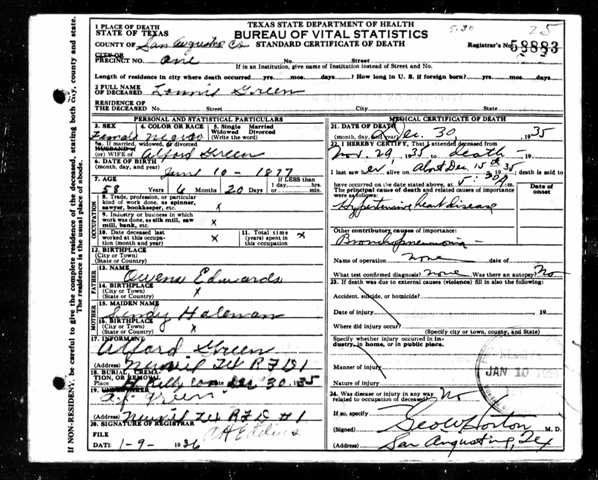 TEXAS STATE DEPARTMENT OF HEALTH
BUREAU OF VITAL STATISTICS
STANDARD CERTIFICATE OF DEATH
5-30
25
Registrar's No. 58883
1 PLACE OF DEATH
STATE OF TEXAS
COUNTY OF San Augustine Co
CITY OR
PRECINCT NO. one No. Street
If in an Institution, give name of Institution instead of Street and No.
Length of residence in city where death occurred yrs. mos. days. How long in U. S. if foreign born? yrs. mos. days.
2 FULL NAME
OF DECEASED Lonnie Green
RESIDENCE OF
THE DECEASED No. Street City State
PERSONAL AND STATISTICAL PARTICULARS
3. SEX 4. COLOR OR RACE 5. Single Married
Widowed Divorced
(Write the word)
Female negro
5a. If married, widowed or divorced
HUSBAND OF
(or) WIFE OF Alford Green
6. DATE OF BIRTH
(month, day, and year) June 10 - 1877
7. AGE
58 Years 6 Months 20 Days If LESS than
1 day, hrs.
or min.
OCCUPATION
8. Trade, profession, or particular
kind of work done, as spinner,
sawyer, bookkeeper, etc. x
9. Industry or business in which
work was done, as silk mill, saw
mill, bank, etc. x
10. Date deceased last
worked at this occupa-
tion (month and year) x
11. Total time (years)
spent in
this occupation x
12. BIRTHPLACE
(City or Town)
(State or Country)
FATHER
13. NAME
Owens Edwards
14. BIRTHPLACE
(City or Town)
(State or Country) x
MOTHER
15. MAIDEN NAME
Sindy Holeman
16. BIRTHPLACE
(City or Town)
(State or Country) x
17. INFORMANT
Alford Green
(Address) RFD 1
18. BURIAL, CREMA-
TION, OR REMOVAL
Place Dec 30 35
19. UNDERTAKER
A.J. Green
(Address) RFD #1
20. SIGNATURE OF REGISTRAR
FILE
DATE 1-9- 1936
MEDICAL CERTIFICATE OF DEATH
21. DATE OF DEATH
(month, day, and year) Dec. 30 1935
22. I HEREBY CERTIFY, That I attended deceased from
Nov. 29, 1935 to death
I last saw her alive on About Dec. 15th 1935 death is said to
have occurred on the date stated above, at
The principal cause of death and related causes of importance
were as follows:
Date of
onset
Hypertensive heart disease
Other contributory causes of importance:
Bronchopneumonia
Name of operation none
What test confirmed diagnosis? none Was there an autopsy? No
23. If death was due to external causes (violence) fill in also the following:
Accident, suicide, or homicide?
Date of injury 19
Where did injury occur?
(Specify city or town, county, and State)
Specify whether injury occurred in in-
dustry, in home, or in public place.
Manner of injury
Nature of injury
JAN 10
24. Was disease or injury in any way
related to occupation of deceased? No
If so, specify
(Signed) Geo W Horton M. D.
(Address) San Augustine, Tex
IF NON-RESIDENT, be careful to give the complete residence of the deceased, stating both city, county and state.
The residence is the usual place of abode.